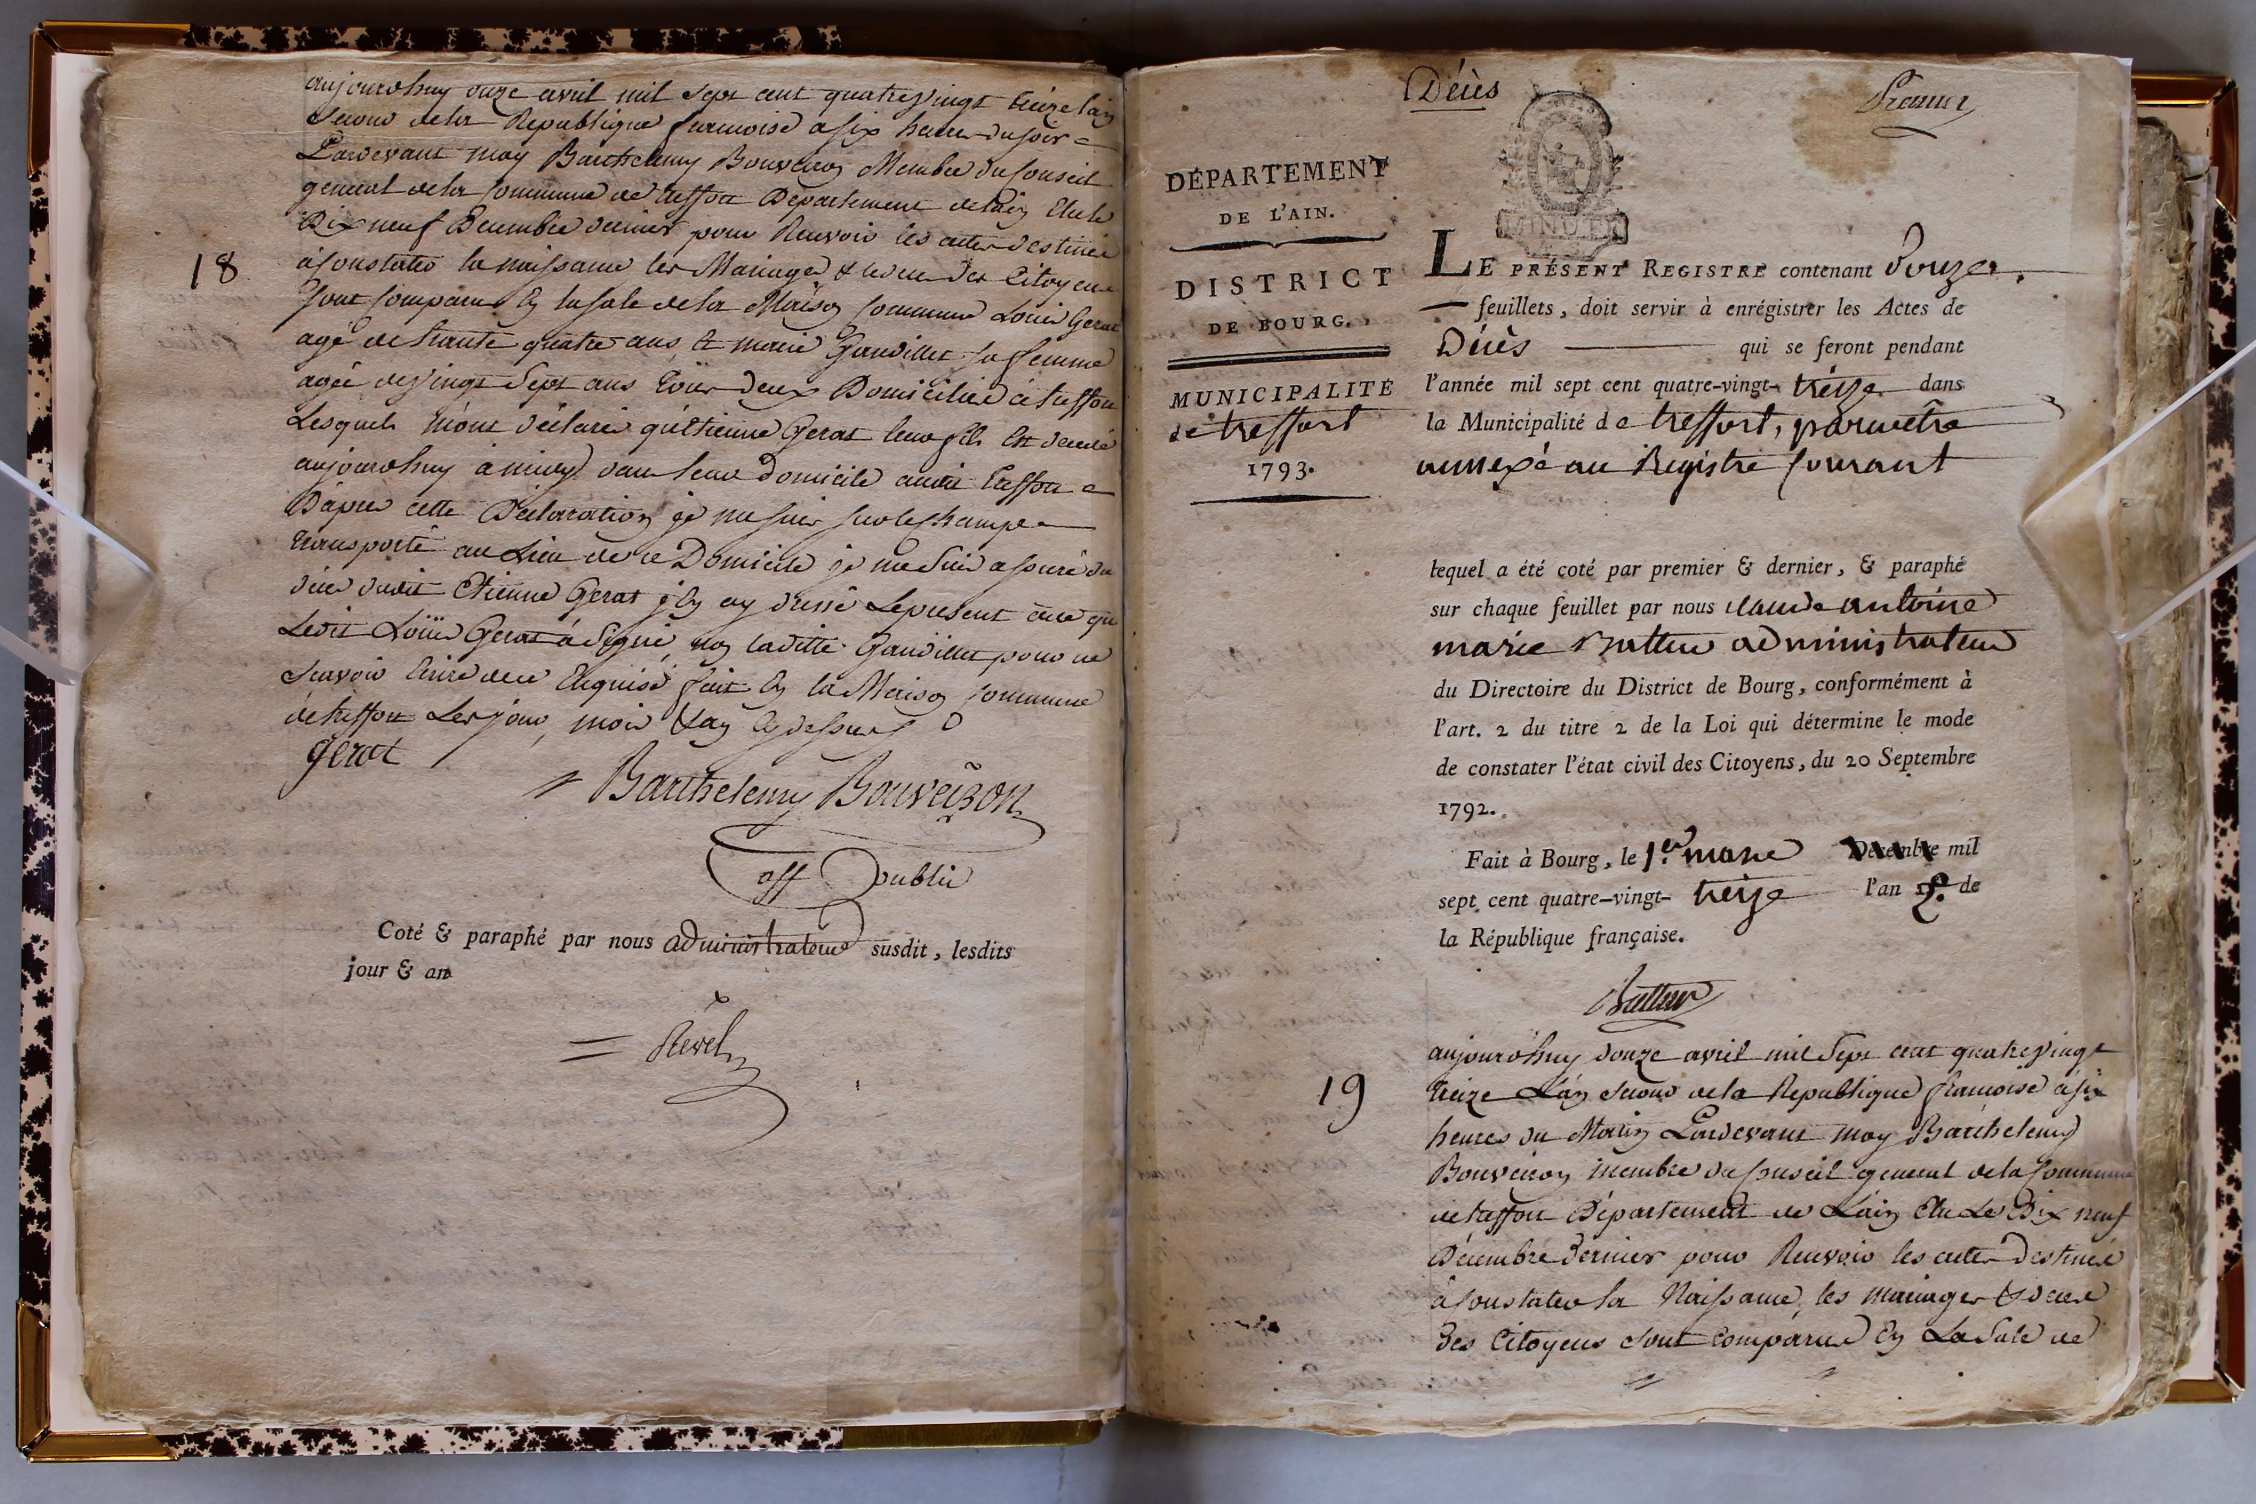 aujourdhuy onze avril mil Sept cent quatrevingt treize Lan
Second dela Republique francoise a six heures du soir
Pardevant moy Barthelemy Bouveiron Membre du Conseil
general dela Commune de treffort Département delain Elu le
Dix neuf Décembre dernier pour Recevoir les actes destinés
18
à Constater la naissance les Mariages & deces des Citoyens
Sont Comparu En la sale dela Maison Commune Louis Gerat
agé de trante quatre ans, et marie Gaudillet sa femme
agée devingt Sept ans tous deux Domiciliés à treffort
Lesquels m'ont déclaré qu'Etienne Gerat leur fils Est décedé
aujourdhuy à midy dans leur Domicile audit treffort
D'apres cette Déclaration je me suis sur le Champ
transporté au Lieu de ce Domicile je me Suis assuré du
déces dudit Etienne Gerat j'En ay dressé Lepresent acte que
Ledit Louis Gerat à Signé, non laditte Gaudillet pour ne
Scavoir Ecrire de ce Enquise fait En la Maison Commune
de treffort Les jour, mois & an Cy dessus
gerat
Barthelemy Bouveiron
off Public
Coté & paraphé par nous administrateur susdit, lesdits
jour & an
Revel
Décès
Premier
DÉPARTEMENT
DE L'AIN.
DISTRICT
DE BOURG.
MUNICIPALITÉ
de treffort
1793.
MINUTE
LE PRÉSENT REGISTRE contenant Douze
feuillets, doit servir à enrégistrer les Actes de
Décès qui se feront pendant
l'année mil sept cent quatre-vingt-treize dans
la Municipalité de treffort, pour etre
annexé au Registre Courant
lequel a été coté par premier & dernier, & paraphé
sur chaque feuillet par nous claude antoine
marie Buttin administrateur
du Directoire du District de Bourg, conformément à
l'art. 2 du titre 2 de la Loi qui détermine le mode
de constater l'état civil des Citoyens, du 20 Septembre
1792.
Fait à Bourg, le 1.er mars Décembre mil
sept cent quatre-vingt-treize l'an 2. de
la République française.
19
aujourdhuy douze avril mil Sept cent quatrevingt
treize L'an Second de la Republique francoise à six
heures du Matin Pardevant moy Barthelemy
Bouveiron membre du Conseil general de la Commune
de treffort Département de L'ain Elu Le Dix neuf
Décembre dernier pour Recevoir les actes Destinés
à Constater la Naissance, les mariages & deces
Des Citoyens Sont Comparus En La Sale de